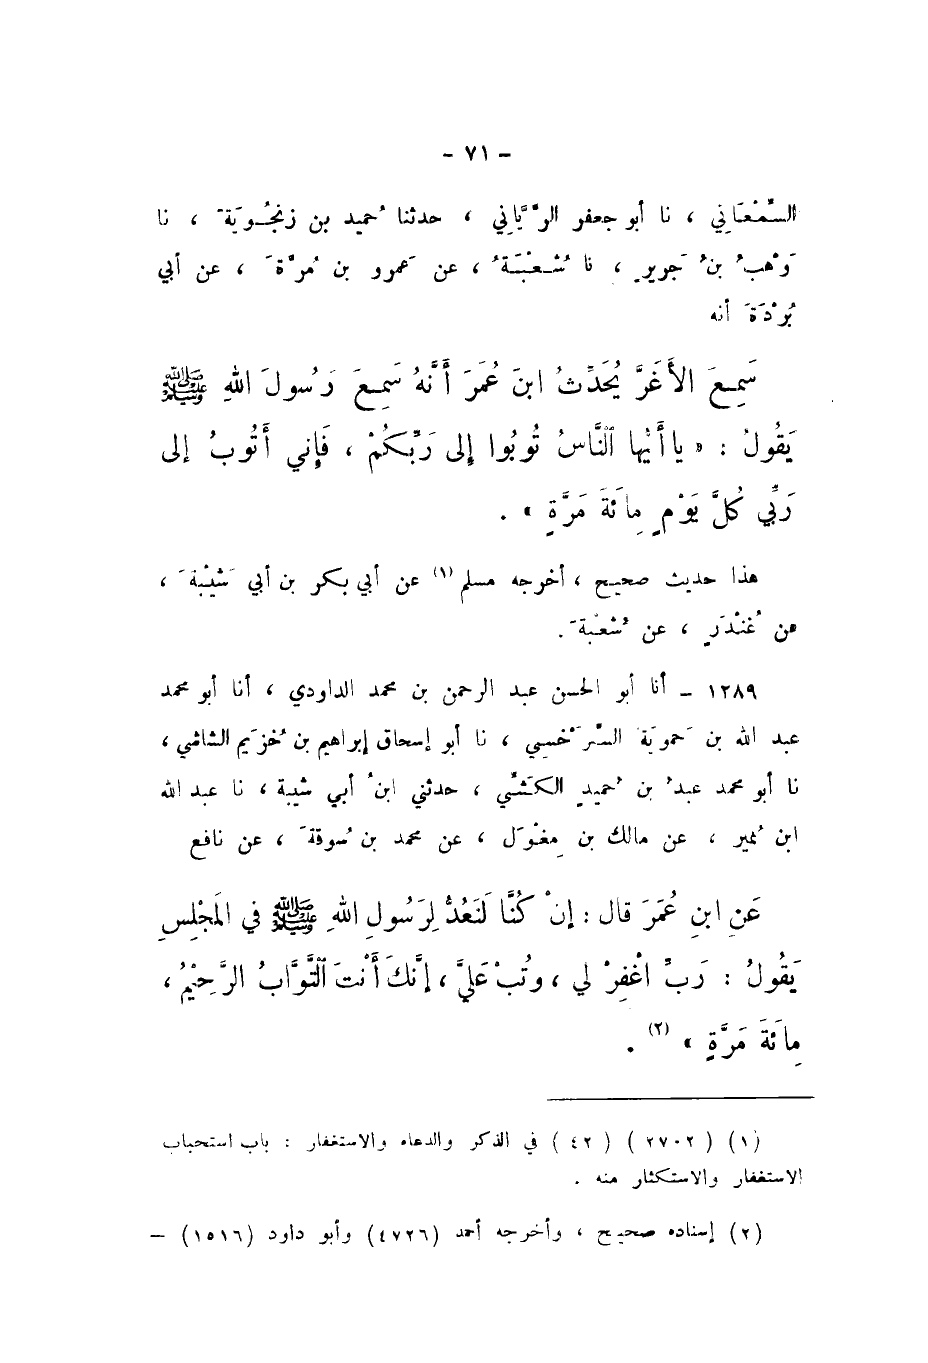 - ٧١ -
السَّمْعَانِي ، نا أبو جعفر الرَّيَّانِي ، حدثنا حُميد بن زنجُويَة ، نا
وَهبُ بنُ جَريرٍ ، نا شُعْبَةُ ، عن عَمرو بن مُرَّةَ ، عن أبي
بُرْدَةَ أنه
سَمِعَ الأَغَرَّ يُحَدِّثُ ابنَ عُمَرَ أَنَّهُ سَمِعَ رَسُولَ اللهِ ﷺ
يَقُولُ : « يا أَيُّها النَّاسُ تُوبُوا إلى رَبِّكُمْ ، فَإِنِي أَتُوبُ إلى
رَبِّي كُلَّ يَوْمٍ مِائَةَ مَرَّةٍ » .
هذا حديث صحيح ، أخرجه مسلم (١) عن أبي بكر بن أبي شَيْبَةَ ،
عن غُنْدَرٍ ، عن شُعْبَةَ .
١٢٨٩ – أنا أبو الحسن عبد الرحمن بن محمد الداودي ، أنا أبو محمد
عبد الله بن حَمويَة السَّرَخْسِي ، نا أبو إسحاق إبراهيم بن خُزَيم الشاشي ،
نا أبو محمد عبدُ بن حُميدٍ الكَشِّي ، حدثني ابنُ أبي شيبة ، نا عبد الله
ابن نُمير ، عن مالك بن مِغْوَل ، عن محمد بن سُوقةَ ، عن نافع
عَنِ ابنِ عُمَرَ قال : إِنْ كُنَّا لَنَعُدُّ لِرَسُولِ اللهِ ﷺ في المَجْلِسِ
يَقُولُ : رَبِّ اغْفِرْ لي ، وتُبْ عَلَيَّ ، إنَّكَ أَنْتَ التَّوَّابُ الرَّحِيْمُ ،
مِائَةَ مَرَّةٍ » (٢) .
(١) ( ٢٧٠٢ ) ( ٤٢ ) في الذكر والدعاء والاستغفار : باب استحباب
الاستغفار والاستكثار منه .
(٢) إسناده صحيح ، وأخرجه أحمد (٤٧٢٦) وأبو داود (١٥١٦) –